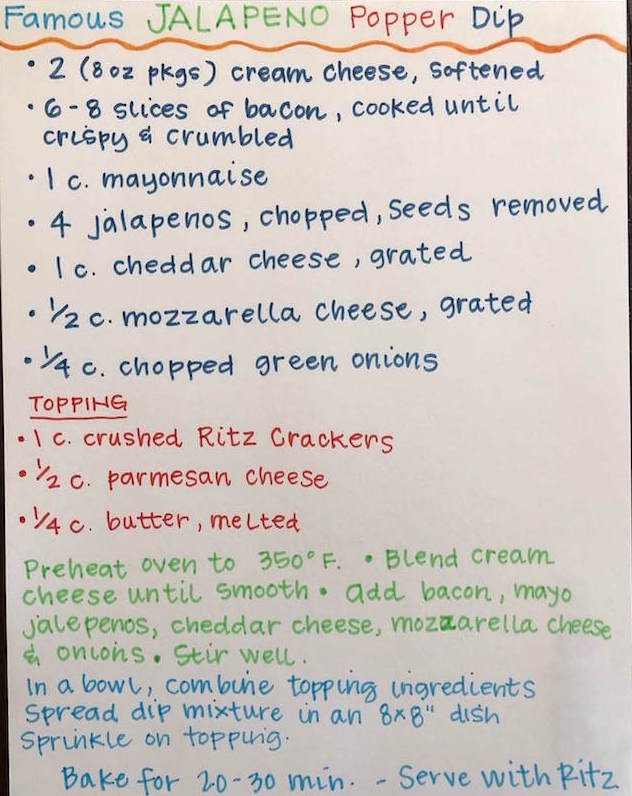 Famous JALAPENO Popper Dip
• 2 (8 oz pkgs) cream cheese, softened
• 6-8 slices of bacon, cooked until
crispy & crumbled
• 1 c. mayonnaise
• 4 jalapenos, chopped, seeds removed
• 1 c. cheddar cheese, grated
• 1/2 c. mozzarella cheese, grated
• 1/4 c. chopped green onions
TOPPING
• 1 c. crushed Ritz Crackers
• 1/2 c. parmesan cheese
• 1/4 c. butter, melted
Preheat oven to 350° F. • Blend cream
cheese until smooth • add bacon, mayo
jalepenos, cheddar cheese, mozzarella cheese
& onions. Stir well.
In a bowl, combine topping ingredients
Spread dip mixture in an 8x8" dish
Sprinkle on topping.
Bake for 20-30 min. - Serve with Ritz